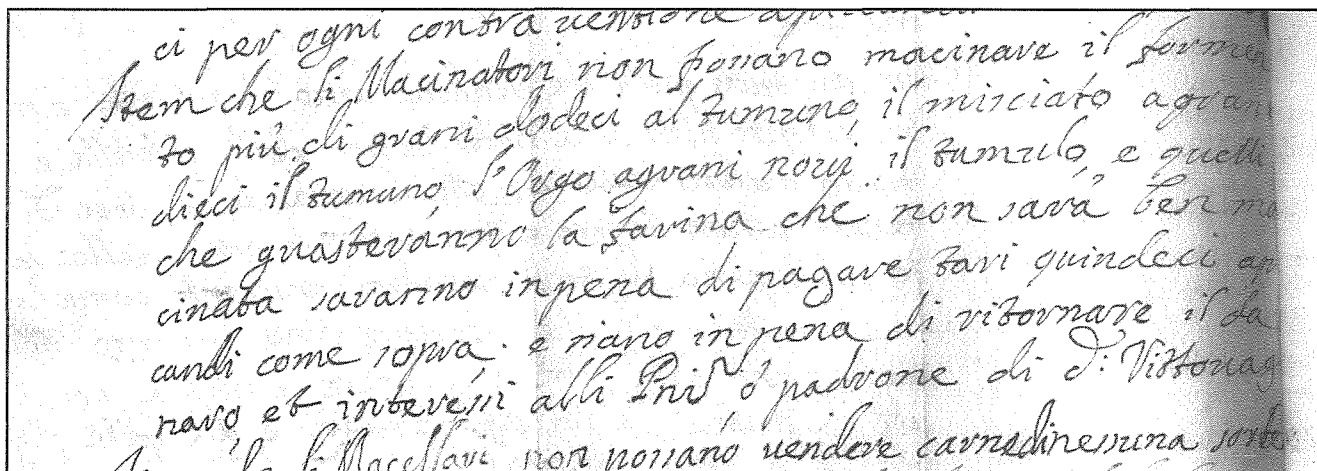 ci per ogni contraventione
Item che li Macinatori non possano macinare il formen
to più di grani dodeci al tumuno, il misciato a grani
dieci il tumuno, l'Orgo a grani novi il tumulo, e quelli
che guasteranno la farina che non sarà ben ma
cinata saranno in pena di pagare tari quindeci ap
candi come sopra. e siano in pena di ritornare il da
naro et interessi alli Pnīi ò padrone di d: Vittouag
li Macellari non possano vendere carne di nessuna sorte